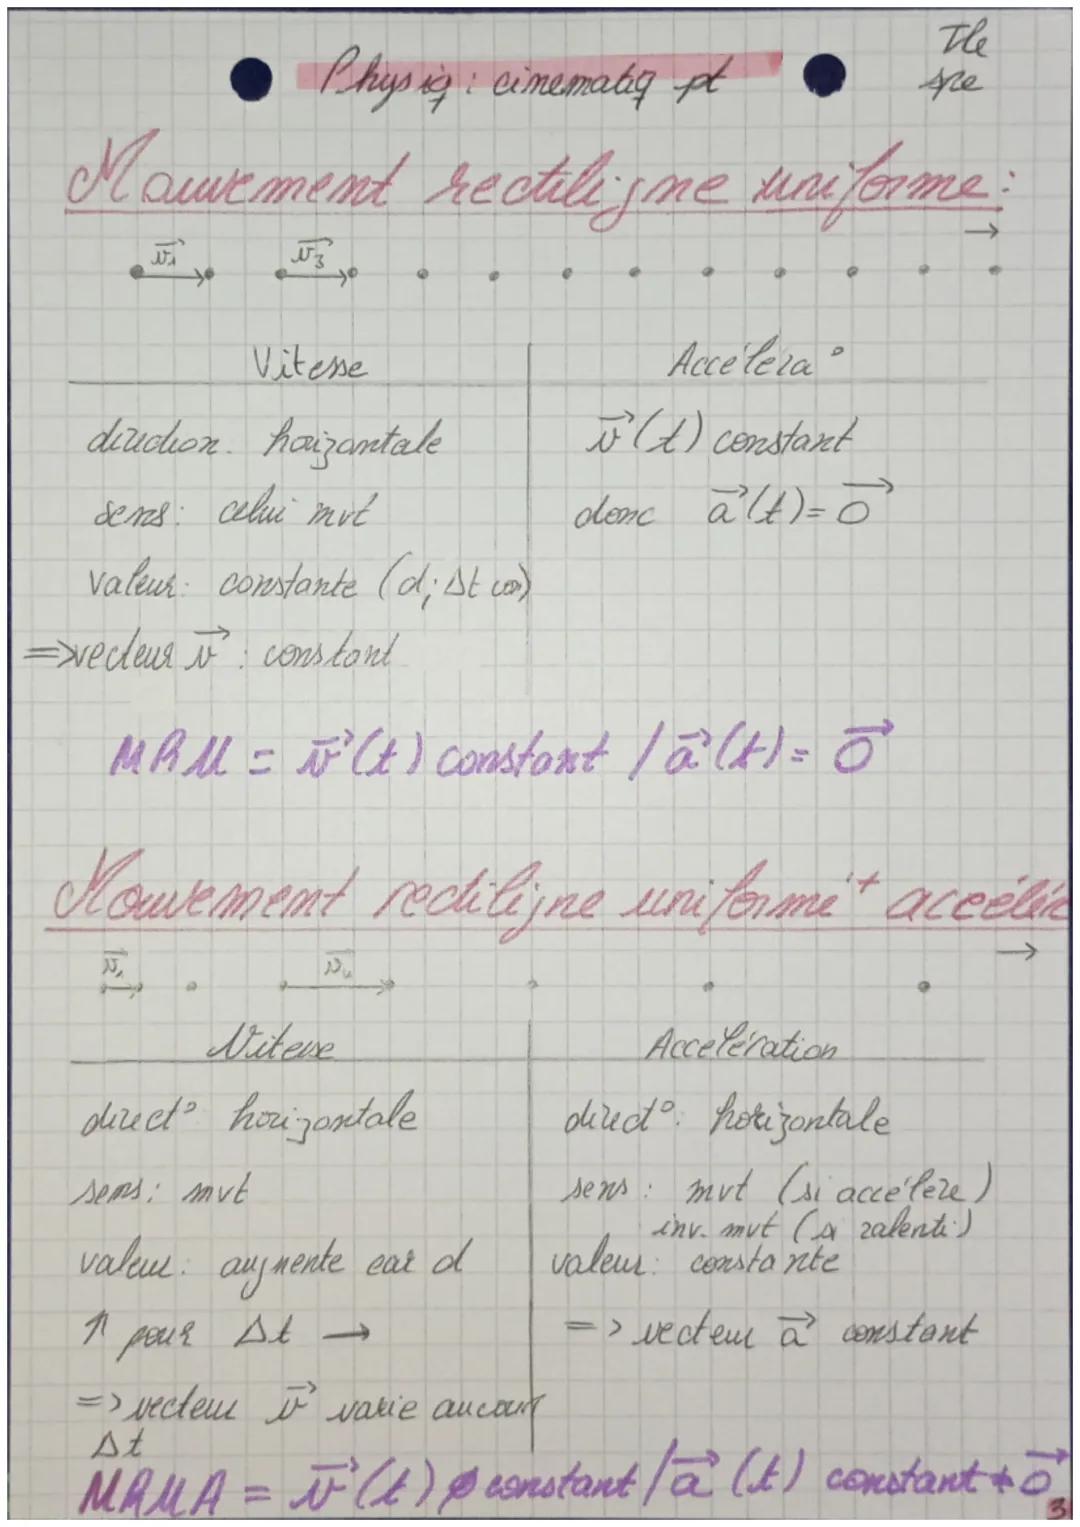 Tle
Physiq : cinematiq pt
spe
Mouvement rectiligne uniforme :
v⃗₁ v⃗₃
Vitesse Accéléra°
direction. horizontale v⃗(t) constant
sens: celui mvt donc a⃗(t)= 0⃗
valeur: constante (d; Δt cos)
=>vecteur v⃗ : constant
MRU = v⃗(t) constant / a⃗(t)= 0⃗
Mouvement rectiligne uniformé+ accélér
v⃗₁ v⃗₄
Vitesse Accélération
direct° horizontale direct°: horizontale
sens: mvt sens : mvt (si accélère)
inv. mvt (si ralenti)
valeur: augmente car d valeur: constante
↑ pour Δt → => vecteur a⃗ constant
=> vecteur v⃗ varie au cours
Δt
MRUA = v⃗(t) constant / a⃗(t) constant ≠ 0⃗
3